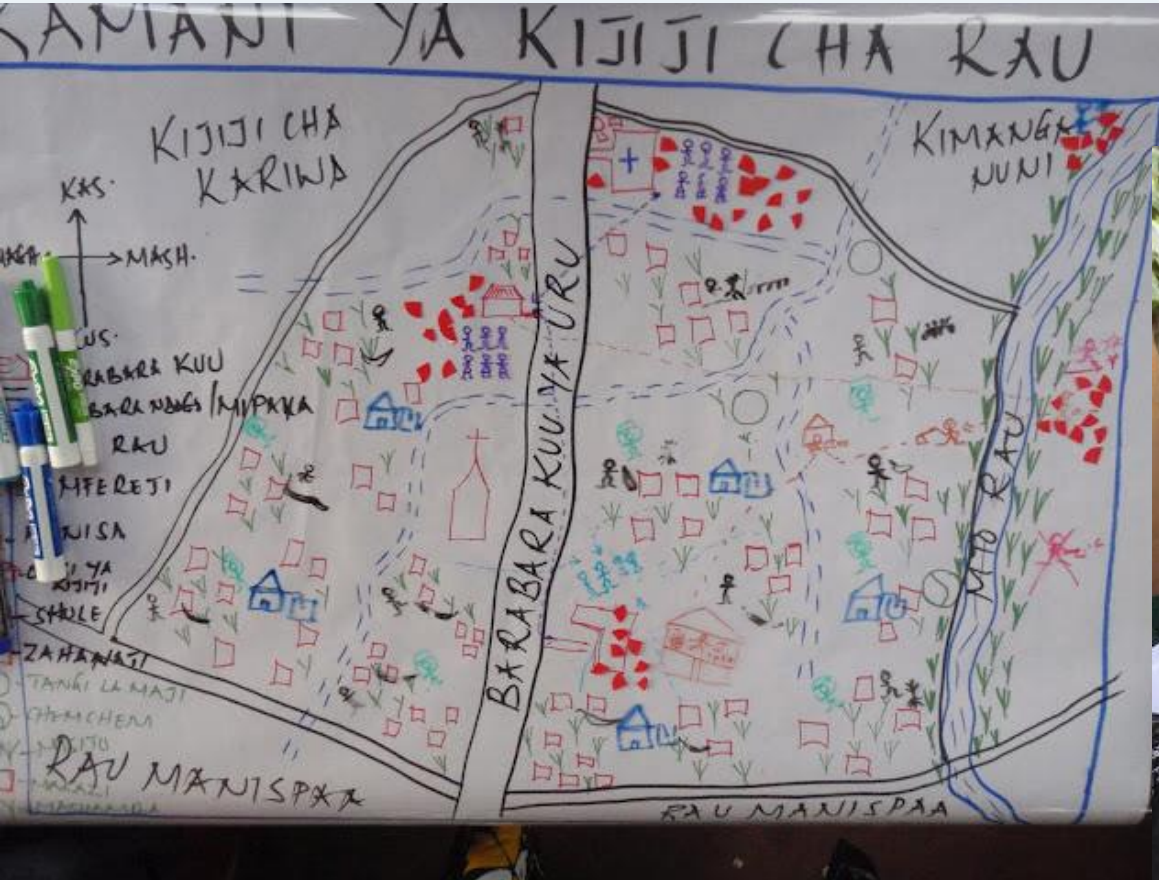 KAMANI YA KIJIJI CHA RAU
KIJIJI CHA
KARIWA
KIMANGA
NUNI
KAS.
MASH.
KUS.
RABARA KUU
BARA NDOGO/MIPAKA
RAU
MFEREJI
KANISA
YA
KIJIJI
SHULE
ZAHANATI
TANKI LA MAJI
CHEMCHEM
BARABARA KUU YA URU
MTO RAU
RAU MANISPAA
RAU MANISPAA